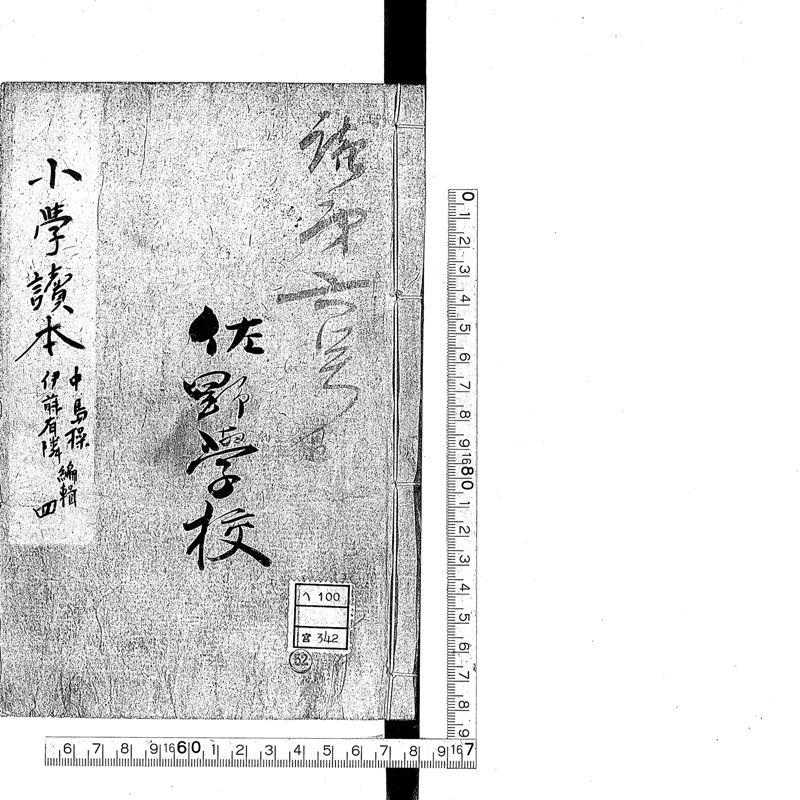 小學讀本
中島操
伊藤有隣
編輯
四
佐野學校
第六号
ヘ 100
宮 342
52
0 1 2 3 4 5 6 7 8 9 16 8 0 1 2 3 4 5 6 7 8 9 16 7
6 7 8 9 16 6 0 1 2 3 4 5 6 7 8 9